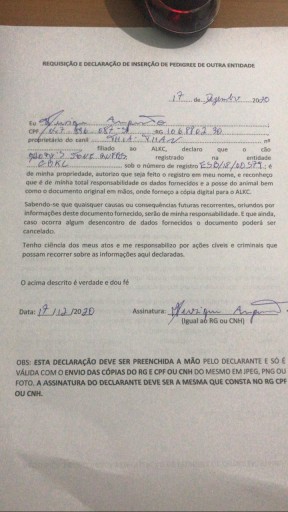 REQUISIÇÃO E DECLARAÇÃO DE INSERÇÃO DE PEDIGREE DE OUTRA ENTIDADE
17 de Dezembro 2020
Eu
CPF RG
proprietário do canil nº
filiado ao ALKC, declaro que o cão
registrado na entidade
CBKC sob o número de registro é
de minha propriedade, autorizo que seja feito o registro em meu nome, e reconheço
que é de minha total responsabilidade os dados fornecidos e a posse do animal bem
como o documento original em mãos, onde forneço a cópia digital para o ALKC.
Sabendo-se que quaisquer causas ou consequências futuras recorrentes, oriundos por
informações deste documento fornecido, serão de minha responsabilidade. E que ainda,
caso ocorra algum desencontro de dados fornecidos o documento poderá ser
cancelado.
Tenho ciência dos meus atos e me responsabilizo por ações cíveis e criminais que
possam recorrer sobre as informações aqui declaradas.
O acima descrito é verdade e dou fé
Data: 17/12/2020 Assinatura:
(Igual ao RG ou CNH)
OBS: ESTA DECLARAÇÃO DEVE SER PREENCHIDA A MÃO PELO DECLARANTE E SÓ É
VÁLIDA COM O ENVIO DAS CÓPIAS DO RG E CPF OU CNH DO MESMO EM JPEG, PNG OU
FOTO. A ASSINATURA DO DECLARANTE DEVE SER A MESMA QUE CONSTA NO RG CPF
OU CNH.